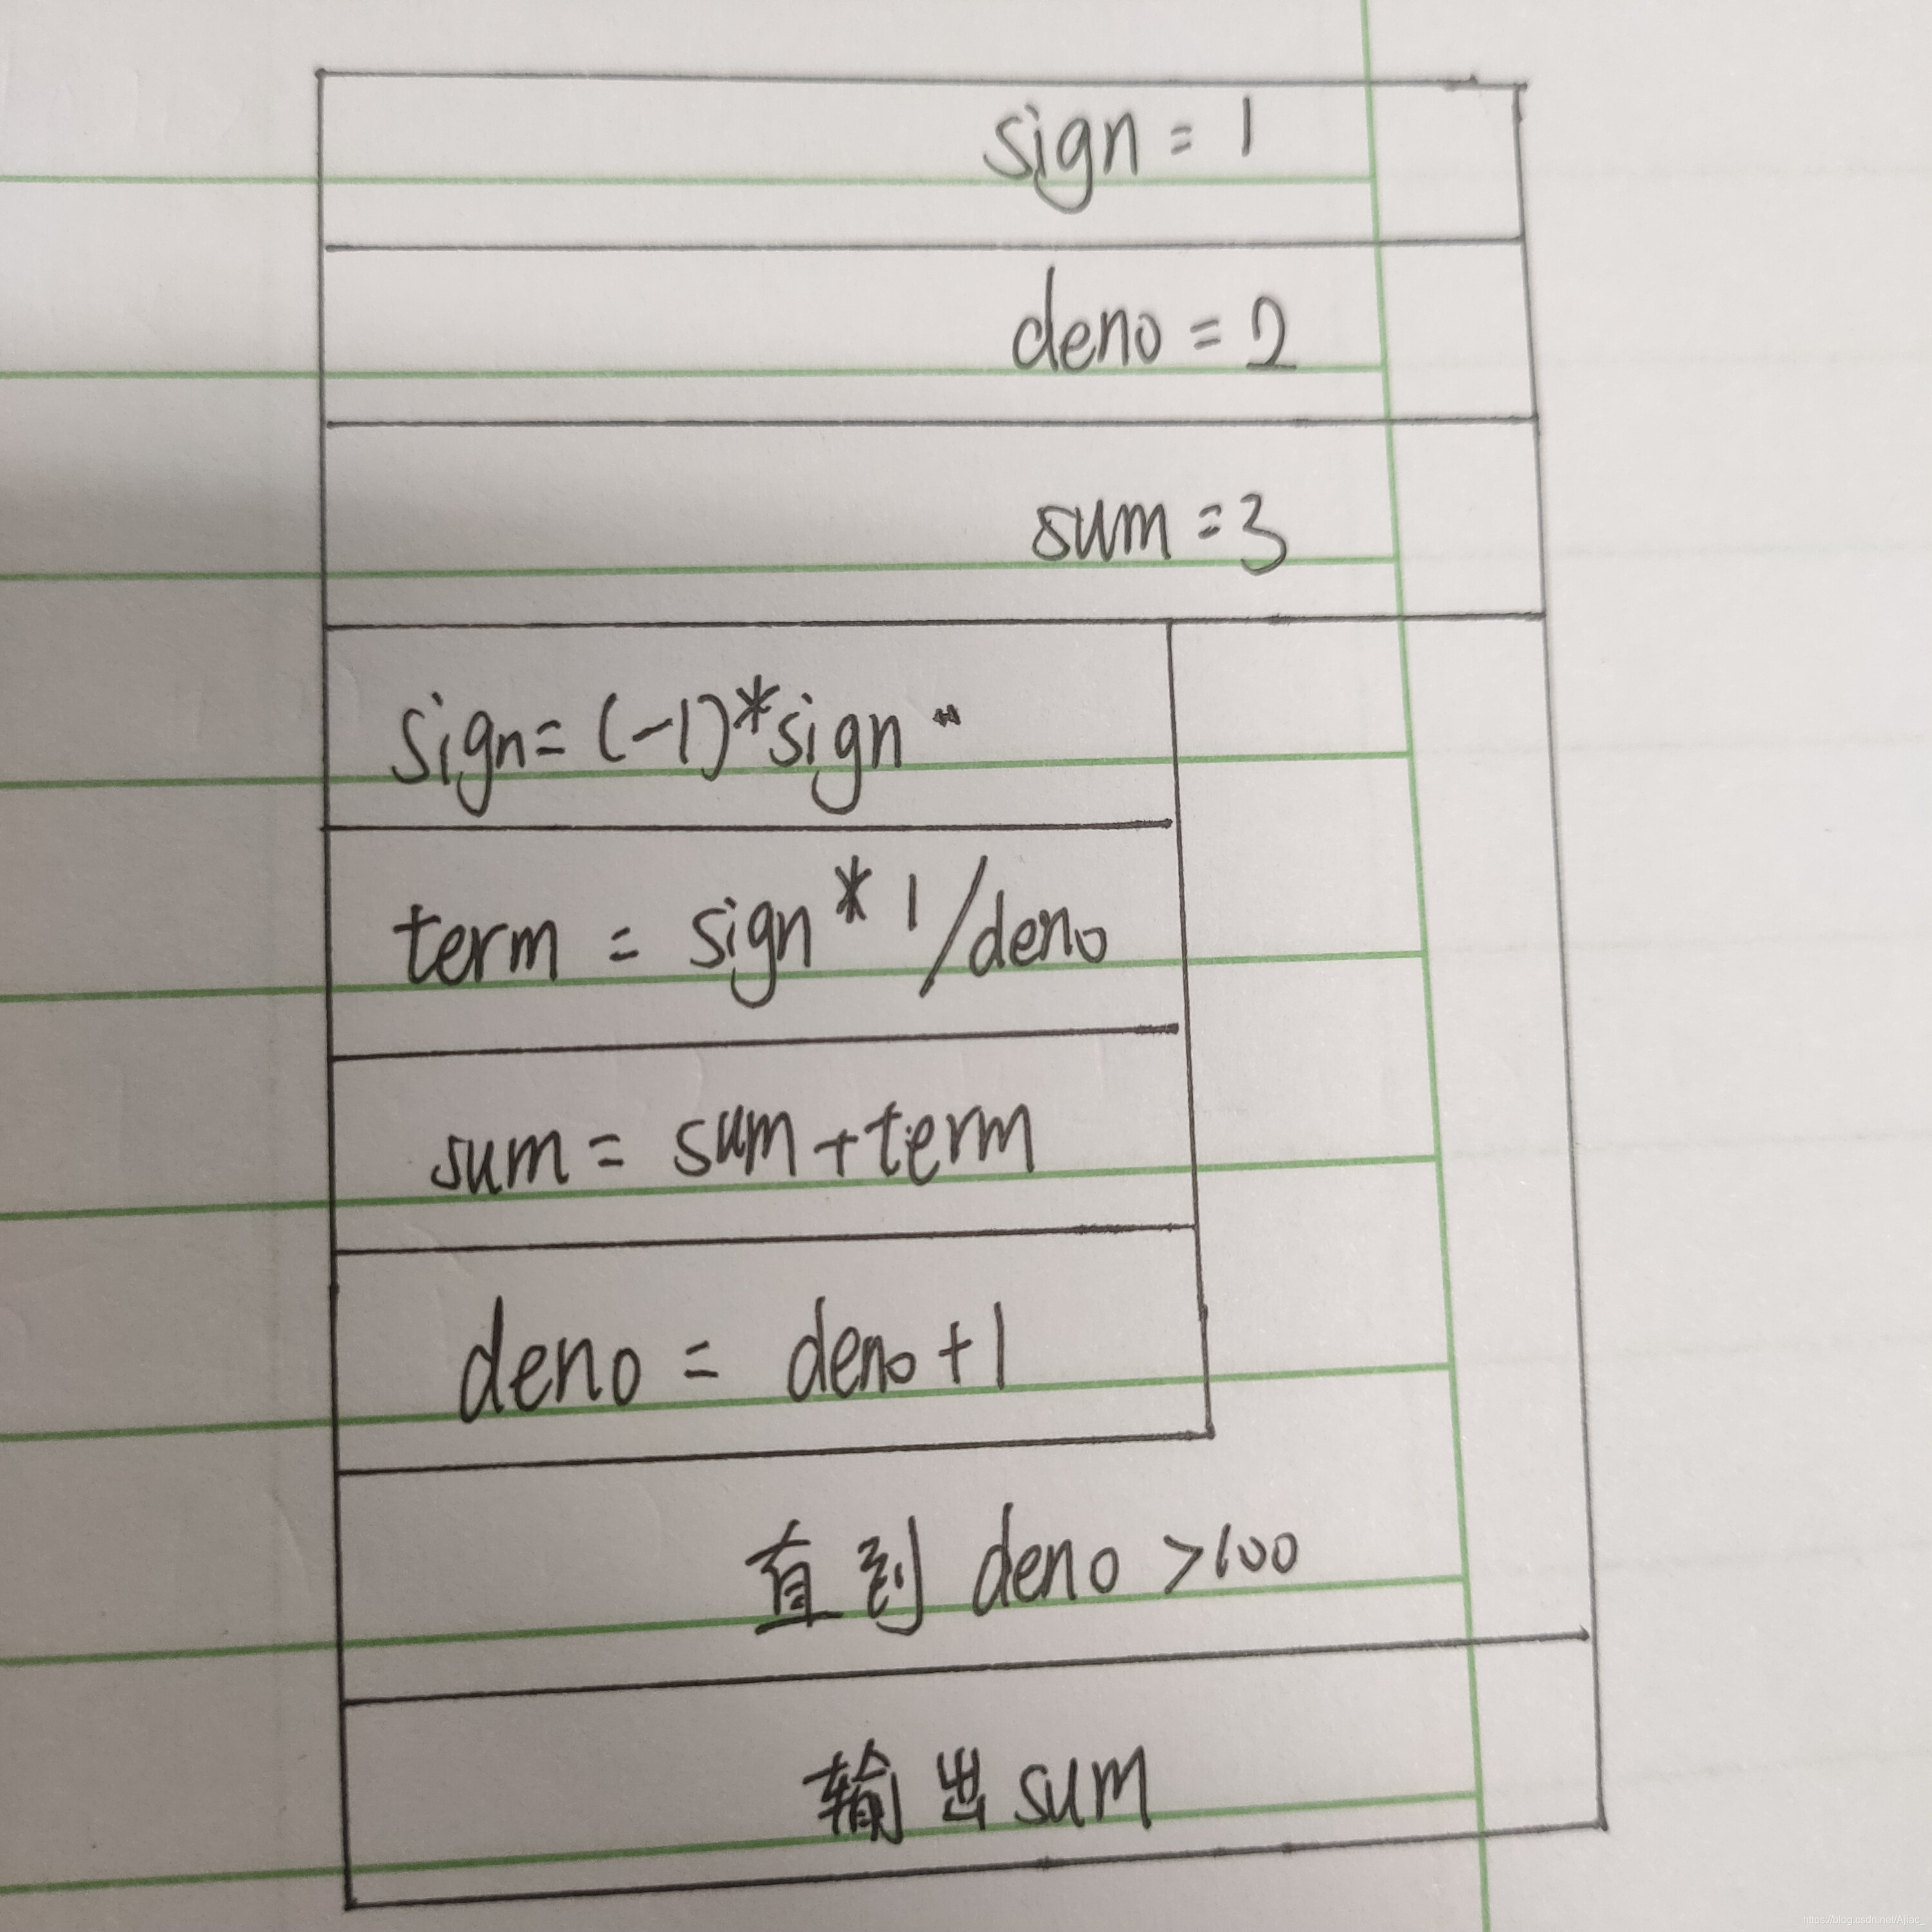 sign = 1
deno = 2
sum = 3
sign = (-1)*sign
term = sign * 1/deno
sum = sum + term
deno = deno + 1
直到 deno > 100
输出 sum